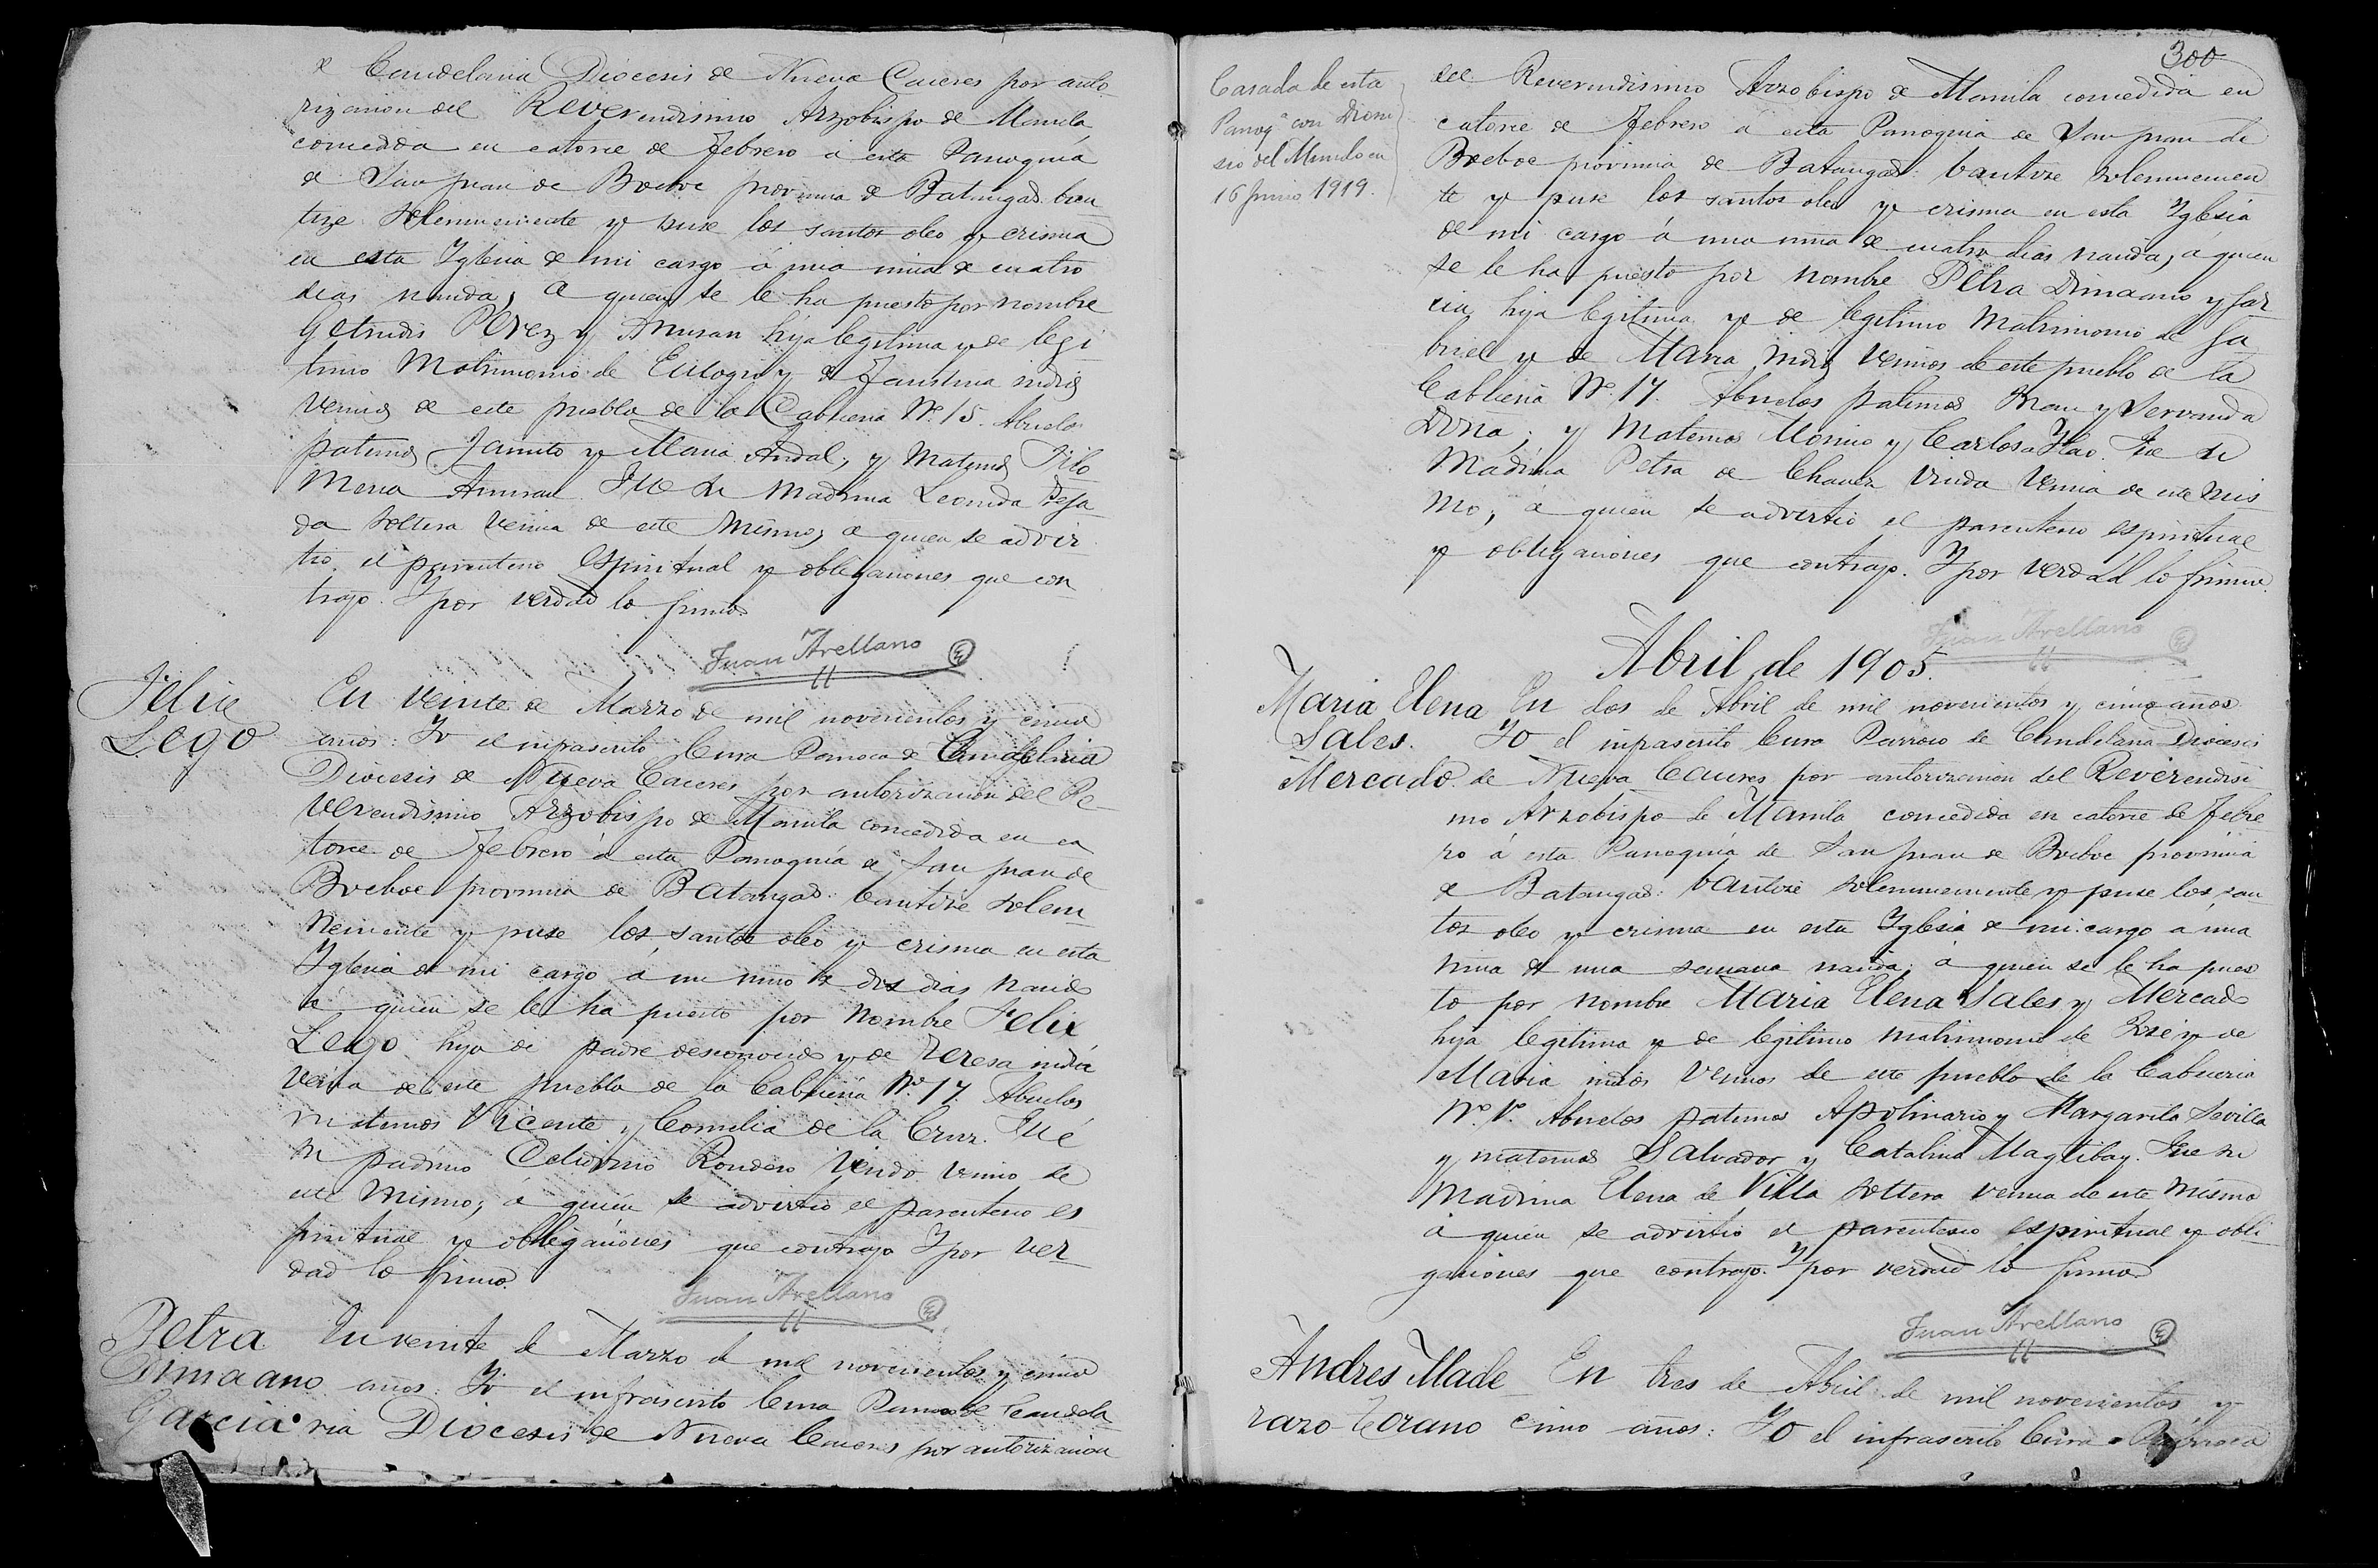 de Candelaria Diocesis de Nueva Caceres por auto
rizacion del Reverendisimo Arzobispo de Manila
concedida en catorce de Febrero á esta Parroquia
de San Juan de Bocboc provincia de Batangas. bau
tize solemnemente y puse los santos oleo y crisma
en esta Yglesia de mi cargo á una niña de cuatro
dias nacida, a quien se le ha puesto por nombre
Getrudis Perez y Anuran hija legitima y de legi
timo Matrimonio de Eulogio y de Faustina indios
vecinos de este pueblo de la Cabceria Nº 15. Abuelos
paternos Jacinto y Maria Andal, y Maternos Filo
mena Anuran. Fue su Madrina Leonida Pesa
da soltera vecina de este mismo, a quien se advir
tio el parentesco espiritual y obligaciones que con
trajo. Y por verdad lo firmo.
Juan Arellano
Felix
Lego
En veinte de Marzo de mil novecientos y cinco
años: Yo el infrascrito Cura Parroco de Candelaria
Diocesis de Nueva Caceres por autorizacion del Re-
verendisimo Arzobispo de Manila concedida en ca
torce de Febrero á esta Parroquia de San Juan de
Bocboc provincia de Batangas: bautize solem
nemente y puse los santos oleo y crisma en esta
Yglesia de mi cargo á un niño de dos dias nacido
á quien se le ha puesto por nombre Felix
Lego hijo de padre desconocido y de Teresa india
vecina de este pueblo de la Cabceria Nº 17. Abuelos
maternos Vicente y Cornelia de la Cruz. Fué
su padrino Celidonio Rondero viudo vecino de
este mismo; á quien se advirtio el parentesco es
piritual y obligaciones que contrajo Y por ver
dad lo firmo.
Juan Arellano
Petra
Dimaano
Garcia
En veinte de Marzo de mil novecientos y cinco
años: Yo el infrascrito Cura Parroco de Candela
ria Diocesis de Nueva Caceres por autorizacion
300
Casada de esta
Parroqª con Dioni
sio del Mundo en
16 Junio 1919.
del Reverendisimo Arzobispo de Manila concedida en
catorce de Febrero á esta Parroquia de San Juan de
Bocboc provincia de Batangas: bautize solemnemen
te y puse los santos oleo y crisma en esta Yglesia
de mi cargo á una niña de cuatro dias nacida, a quien
se le ha puesto por nombre Petra Dimaano y Gar
cia, hija legitima y de legitimo Matrimonio de Ga
briel y de Maria indios vecinos de este pueblo de la
Cabceria Nº 17. Abuelos paternos y Servanda
Dona; y Maternos y Carlosa Ylao. Fue su
Madrina Petra de Chavez viuda vecina de este mis
mo, á quien se advirtio el parentesco espiritual
y obligaciones que contrajo. Y por verdad lo firmo.
Juan Arellano
Abril de 1905.
Maria Elena
Sales
Mercado
En dos de Abril de mil novecientos y cinco años
Yo el infrascrito Cura Parroco de Candelaria Diocesis
de Nueva Caceres por autorizacion del Reverendisi
mo Arzobispo de Manila concedida en catorce de Febre
ro á esta Parroquia de San Juan de Bocboc provincia
de Batangas: bautize solemnemente y puse los san
tos oleo y crisma en esta Yglesia de mi cargo á una
niña de una semana nacida, á quien se le ha pues
to por nombre Maria Elena Sales y Mercado
hija legitima y de legitimo matrimonio de José y de
Maria indios vecinos de este pueblo de la Cabceria
Nº 1º. Abuelos paternos Apolinario y Margarita Sevilla
y maternos Salvador y Catalina Magtibay. Fue su
Madrina Elena de Villa soltera vecina de este mismo
á quien se advirtio el parentesco espiritual y obli-
gaciones que contrajo. Y por verdad lo firmo
Juan Arellano
Andres Made
razo Terano
En tres de Abril de mil novecientos y
cinco años: Yo el infrascrito Cura Parroco